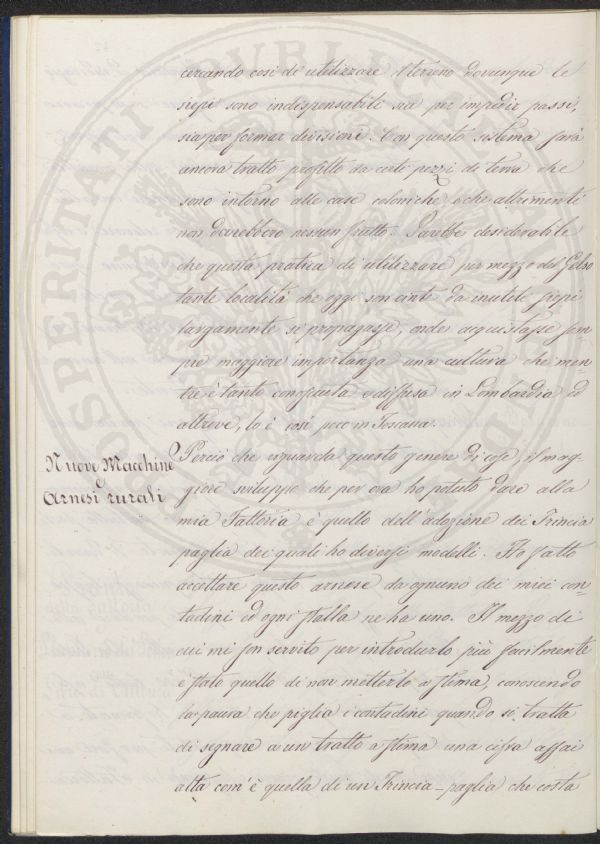 cercando così di utilizzare il terreno dovunque le
siepi sono indispensabili sia per impedir passi,
sia per formar divisioni. Con questo sistema sarà
ancora tratto profitto da certi pezzi di terra che
sono intorno alle case coloniche, e che altrimenti
non darebbero nessun frutto. Sarebbe desiderabile
che questa pratica di utilizzare per mezzo del Gelso
tante località che oggi son cinte da inutile siepi
largamente si propagasse, onde acquistasse sem-
pre maggiore importanza una cultura che men-
tre è tanto conosciuta e diffusa in Lombardia ed
altrove, lo è così poco in Toscana.
Nuove Macchine
e
Arnesi rurali
Perciò che riguarda questo genere di cose, il mag-
giore sviluppo che per ora ho potuto dare alla
mia Fattoria è quello dell'adozione dei Trincia
paglia dei quali ho diversi modelli. Ho fatto
accettare questo arnese da ognuno dei miei con-
tadini ed ogni stalla ne ha uno. Il mezzo di
cui mi son servito per introdurlo più facilmente
è stato quello di non metterlo a stima, conoscendo
la paura che piglia i contadini quando si tratta
di segnare a un tratto a stima una cifra assai
alta com'è quella di un Trincia-paglia che costa
PROSPERITATI PUBLICAE AUGENDAE